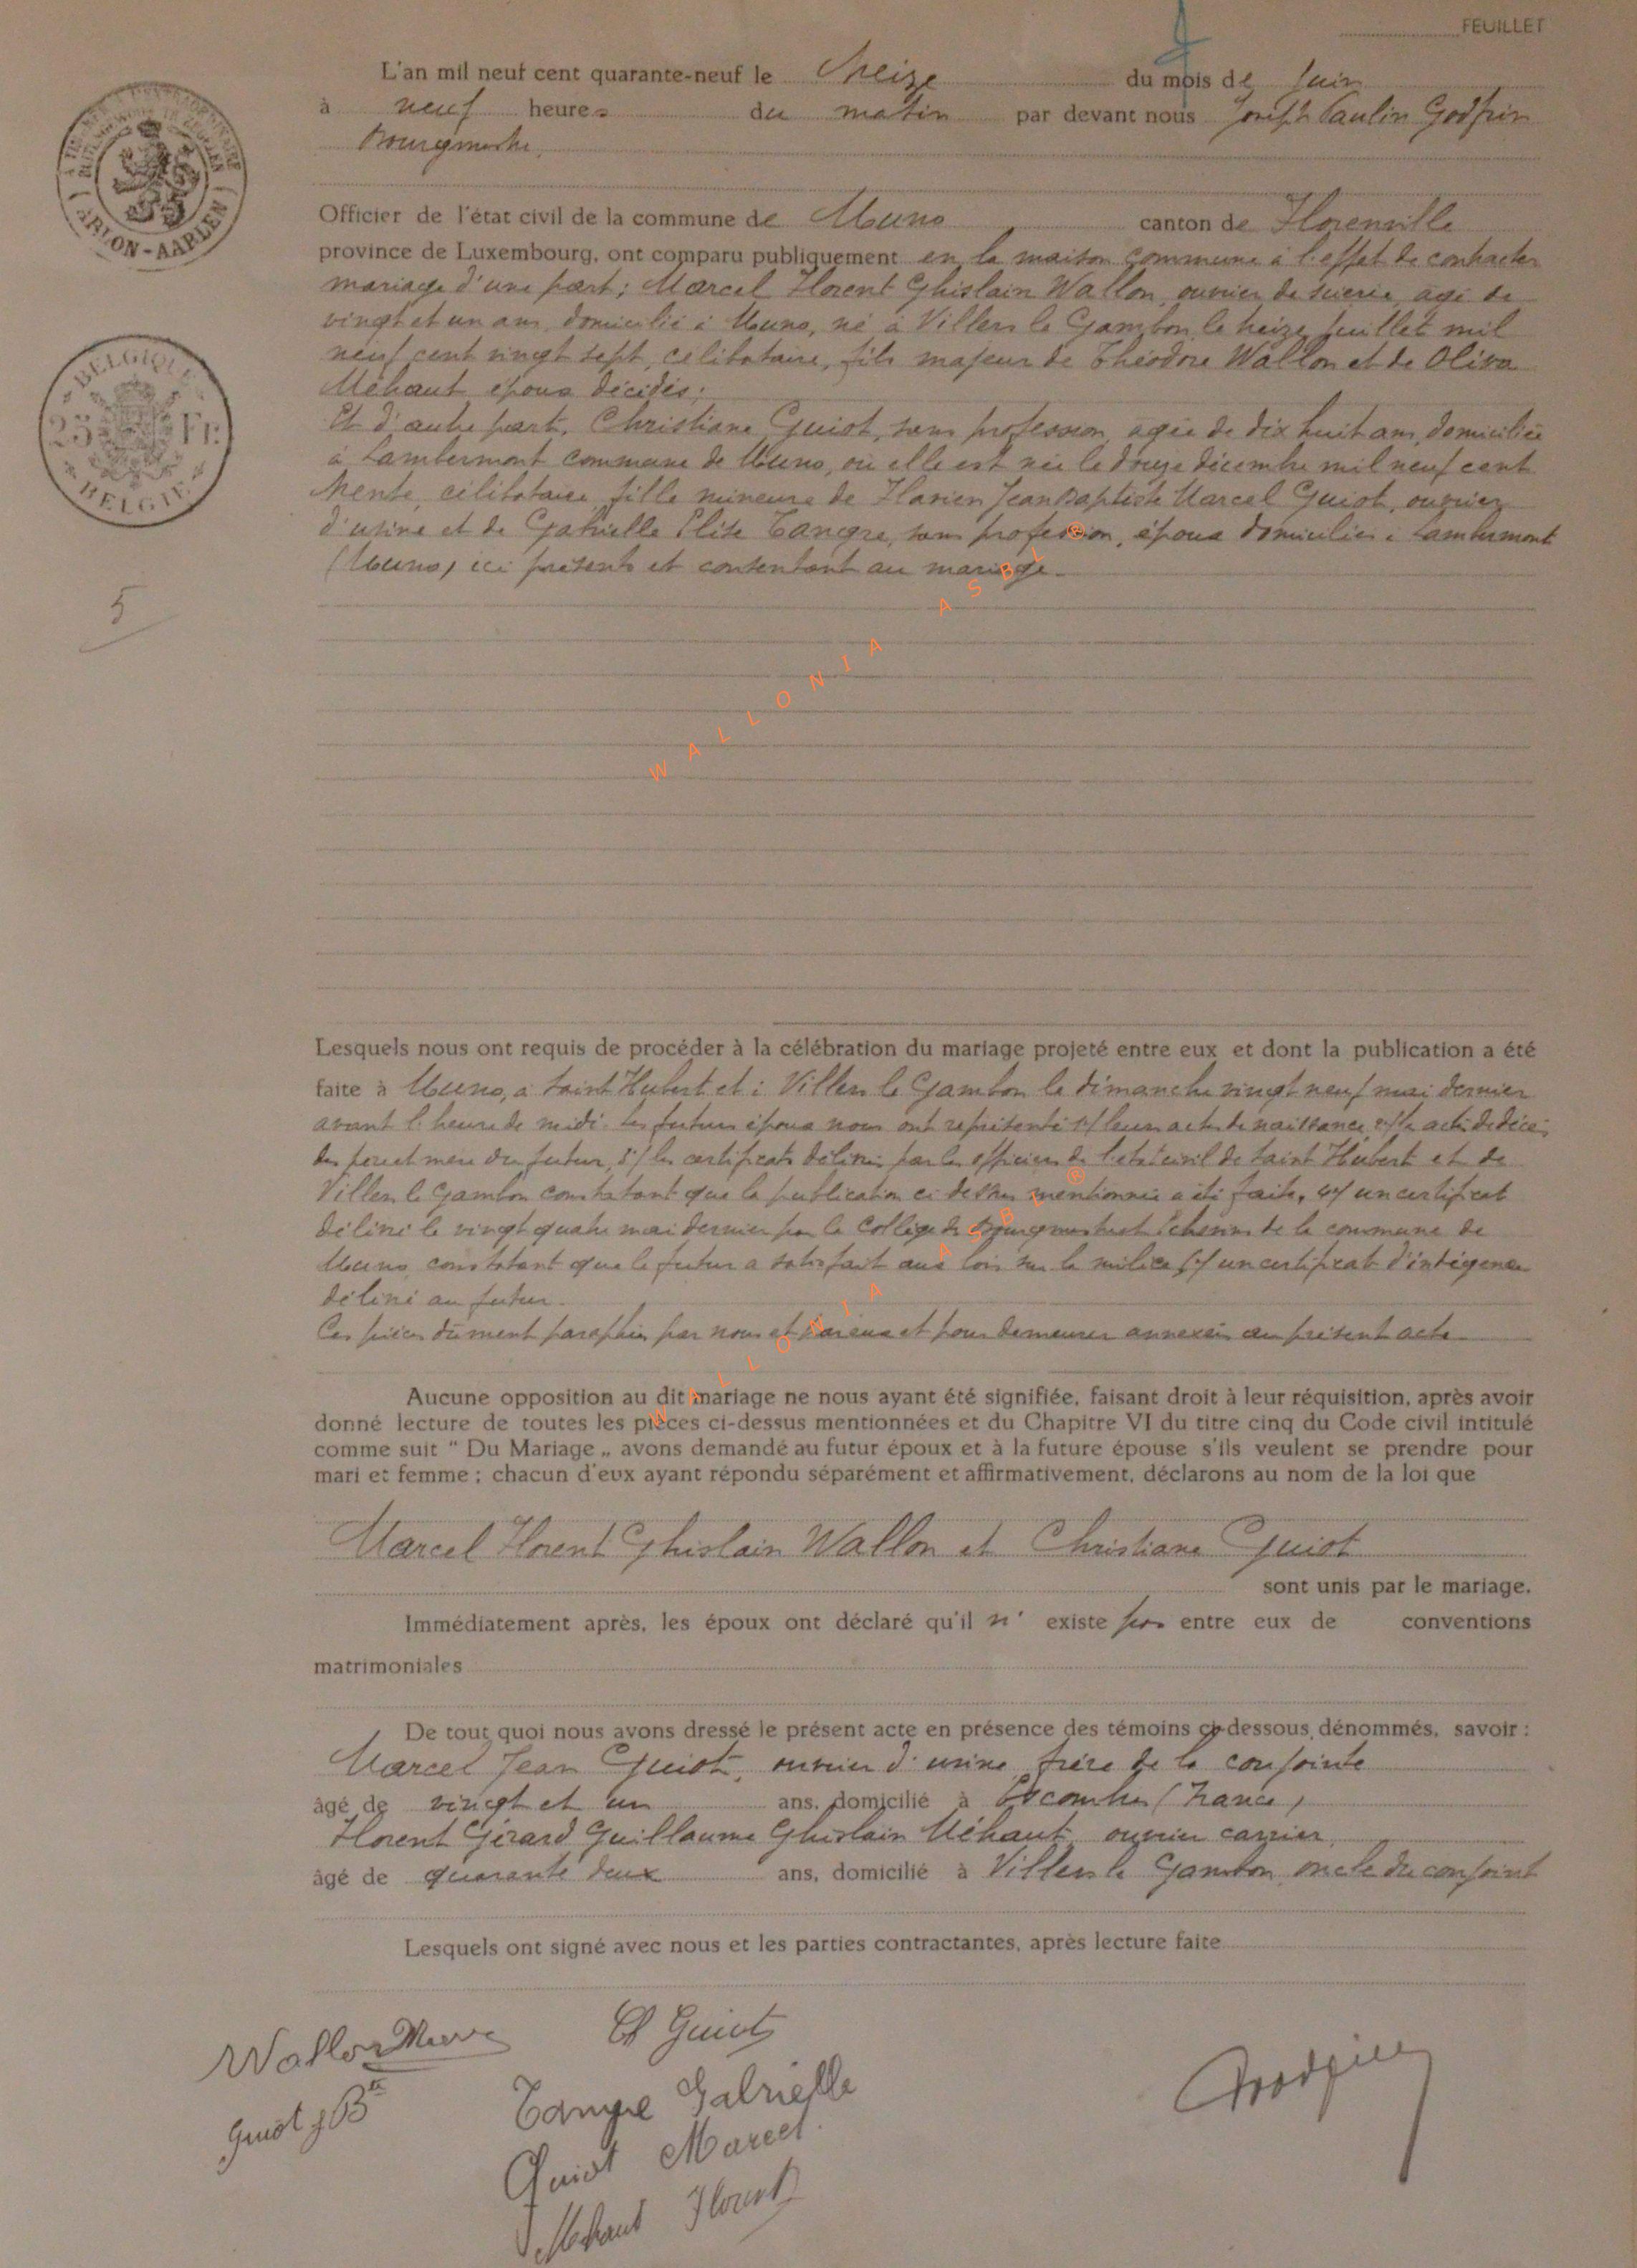 FEUILLET
L'an mil neuf cent quarante-neuf le treize du mois de Juin
à neuf heures du matin par devant nous Joseph Paulin Godfrin
Bourgmestre,
Officier de l'état civil de la commune de Muno canton de Florenville
province de Luxembourg, ont comparu publiquement en la maison commune à l'effet de contracter
mariage d'une part: Marcel Florent Ghislain Wallon, ouvrier de scierie, âgé de
vingt et un ans, domicilié à Muno, né à Villers le Gambon le treize juillet mil
neuf cent vingt sept, célibataire, fils majeur de Théodore Wallon et de Oliva
Méhaut époux décédés;
Et d'autre part, Christiane Guiot, sans profession, agée de dix huit ans, domiciliée
à Lambermont commune de Muno, où elle est née le douze décembre mil neuf cent
trente, célibataire, fille mineure de Flavien Jean Baptiste Marcel Guiot, ouvrier
d'usine et de Gabrielle Elise Tangre, sans profession, époux domiciliés à Lambermont
(Muno) ici présents et consentant au mariage.
Lesquels nous ont requis de procéder à la célébration du mariage projeté entre eux et dont la publication a été
faite à Muno, à Saint Hubert et à Villers le Gambon le dimanche vingt neuf mai dernier
avant l'heure de midi. Les futurs époux nous ont représenté 1/ leurs actes de naissance 2/ les actes de décès
des père et mère du futur, 3/ les certificats délivrés par les officiers de l'état civil de Saint Hubert et de
Villers le Gambon constatant que la publication ci dessus mentionnée a été faite, 4/ un certificat
délivré le vingt quatre mai dernier par le Collège des Bourgmestre et Echevins de la commune de
Muno constatant que le futur a satisfait aux lois sur la milice 5/ un certificat d'indigence
délivré au futur.
Ces pièces dûment paraphées par nous et pour demeurer annexées au présent acte
Aucune opposition au dit mariage ne nous ayant été signifiée, faisant droit à leur réquisition, après avoir
donné lecture de toutes les pièces ci-dessus mentionnées et du Chapitre VI du titre cinq du Code civil intitulé
comme suit " Du Mariage „ avons demandé au futur époux et à la future épouse s'ils veulent se prendre pour
mari et femme ; chacun d'eux ayant répondu séparément et affirmativement, déclarons au nom de la loi que
Marcel Florent Ghislain Wallon et Christiane Guiot
sont unis par le mariage.
Immédiatement après, les époux ont déclaré qu'il n' existe pas entre eux de conventions
matrimoniales
De tout quoi nous avons dressé le présent acte en présence des témoins ci-dessous dénommés, savoir :
Marcel Jean Guiot, ouvrier d'usine, frère de la conjointe
âgé de vingt et un ans, domicilié à Escombres (France)
Florent Gérard Guillaume Ghislain Méhaut, ouvrier carrier,
âgé de quarante deux ans, domicilié à Villers le Gambon, oncle du conjoint
Lesquels ont signé avec nous et les parties contractantes, après lecture faite
Wallon Marcel
Ch Guiot
Guiot J Bte
Tangre Gabrielle
Guiot Marcel
Méhaut Florent
Godfrin
ARLON-AARLEN
BELGIQUE
25 Fr.
BELGIË
5
WALLONIA ASBL ®
WALLONIA ASBL ®